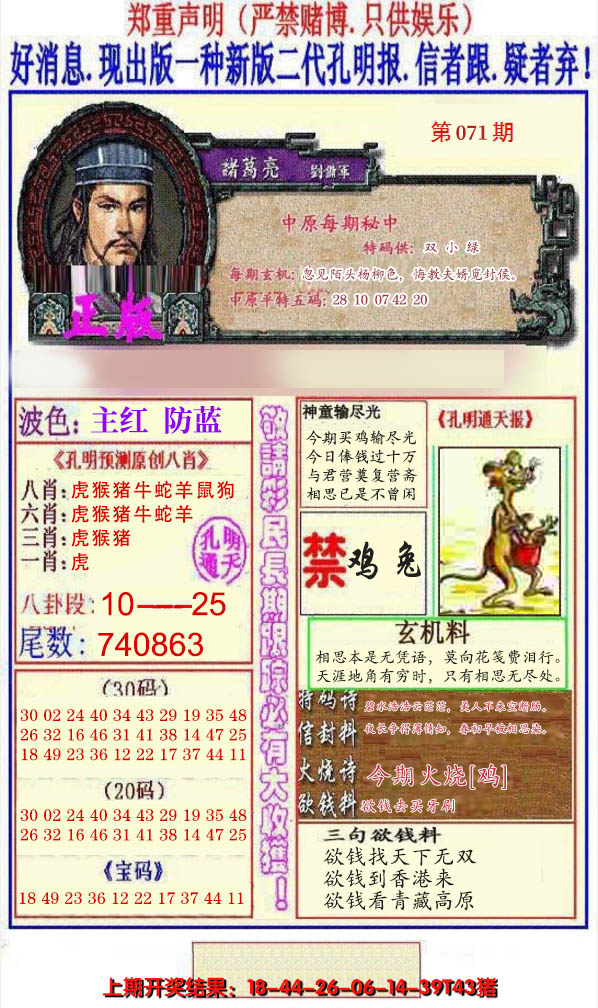 郑重声明（严禁赌博.只供娱乐）
好消息.现出版一种新版二代孔明报.信者跟.疑者弃！
第071期
諸葛亮
中原每期秘中
特码供：双 小 绿
每期玄机：忽见陌头杨柳色，悔教夫婿觅封侯。
中原平特五码：28 10 07 42 20
正版
波色：主红 防蓝
《孔明预测原创八肖》
八肖：虎猴猪牛蛇羊鼠狗
六肖：虎猴猪牛蛇羊
三肖：虎猴猪
一肖：虎
孔明
通天
八卦段：10——25
尾数：740863
（30码）
30 02 24 40 34 43 29 19 35 48
26 32 16 46 31 41 38 14 47 25
18 49 23 36 12 22 17 37 44 11
（20码）
30 02 24 40 34 43 29 19 35 48
26 32 16 46 31 41 38 14 47 25
《宝码》
18 49 23 36 12 22 17 37 44 11
敬請彩民長期跟踪必有大收獲！
神童输尽光
今期买鸡输尽光
今日俸钱过十万
与君营奠复营斋
相思已是不曾闲
《孔明通天报》
禁 鸡 兔
玄机料
相思本是无凭语，莫向花笺费泪行。
天涯地角有穷时，只有相思无尽处。
特码诗 碧水浩浩云茫茫，美人不来空断肠。
信封料 夜长争得薄情知，春初早被相思染。
火烧诗 今期火烧[鸡]
欲钱料 欲钱去买牙刷
三句欲钱料
欲钱找天下无双
欲钱到香港来
欲钱看青藏高原
上期开奖结果：18-44-26-06-14-39T43猪